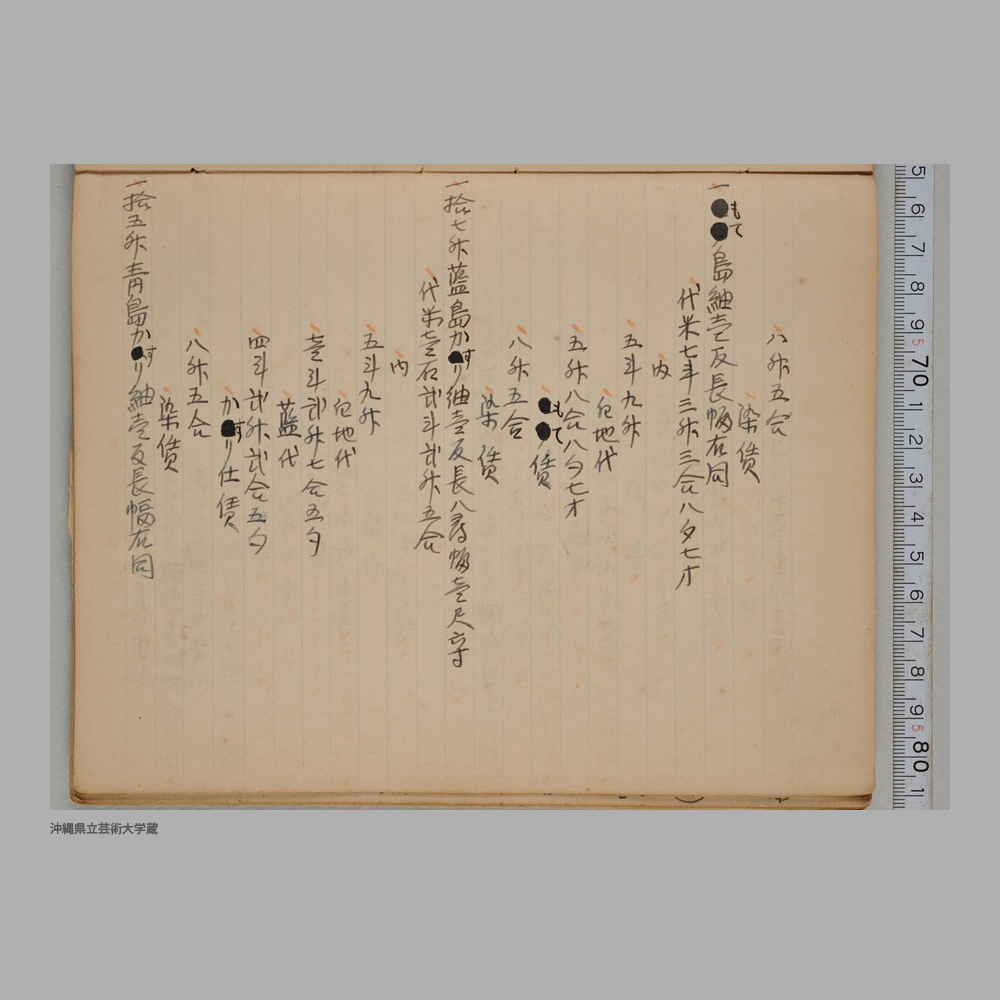 八舛五合
染賃
一●●ノ島紬壱反長幅右同
もて
代米七斗三舛三合八夕七才
内
五斗九舛
包地代
五舛八合八夕七才
●●ノ賃
もて
八舛五合
染賃
一拾七舛藍島か●り紬壱反長八尋幅壱尺弐寸
す
代米壱石弐斗弐舛五合
内
五斗九舛
包地代
壱斗弐舛七合五夕
藍代
四斗弐舛弐合五夕
か●り仕賃
す
八舛五合
染賃
一拾五舛青島か●り紬壱反長幅右同
す
5 6 7 8 9 70 1 2 3 4 5 6 7 8 9 80 1
沖縄県立芸術大学蔵